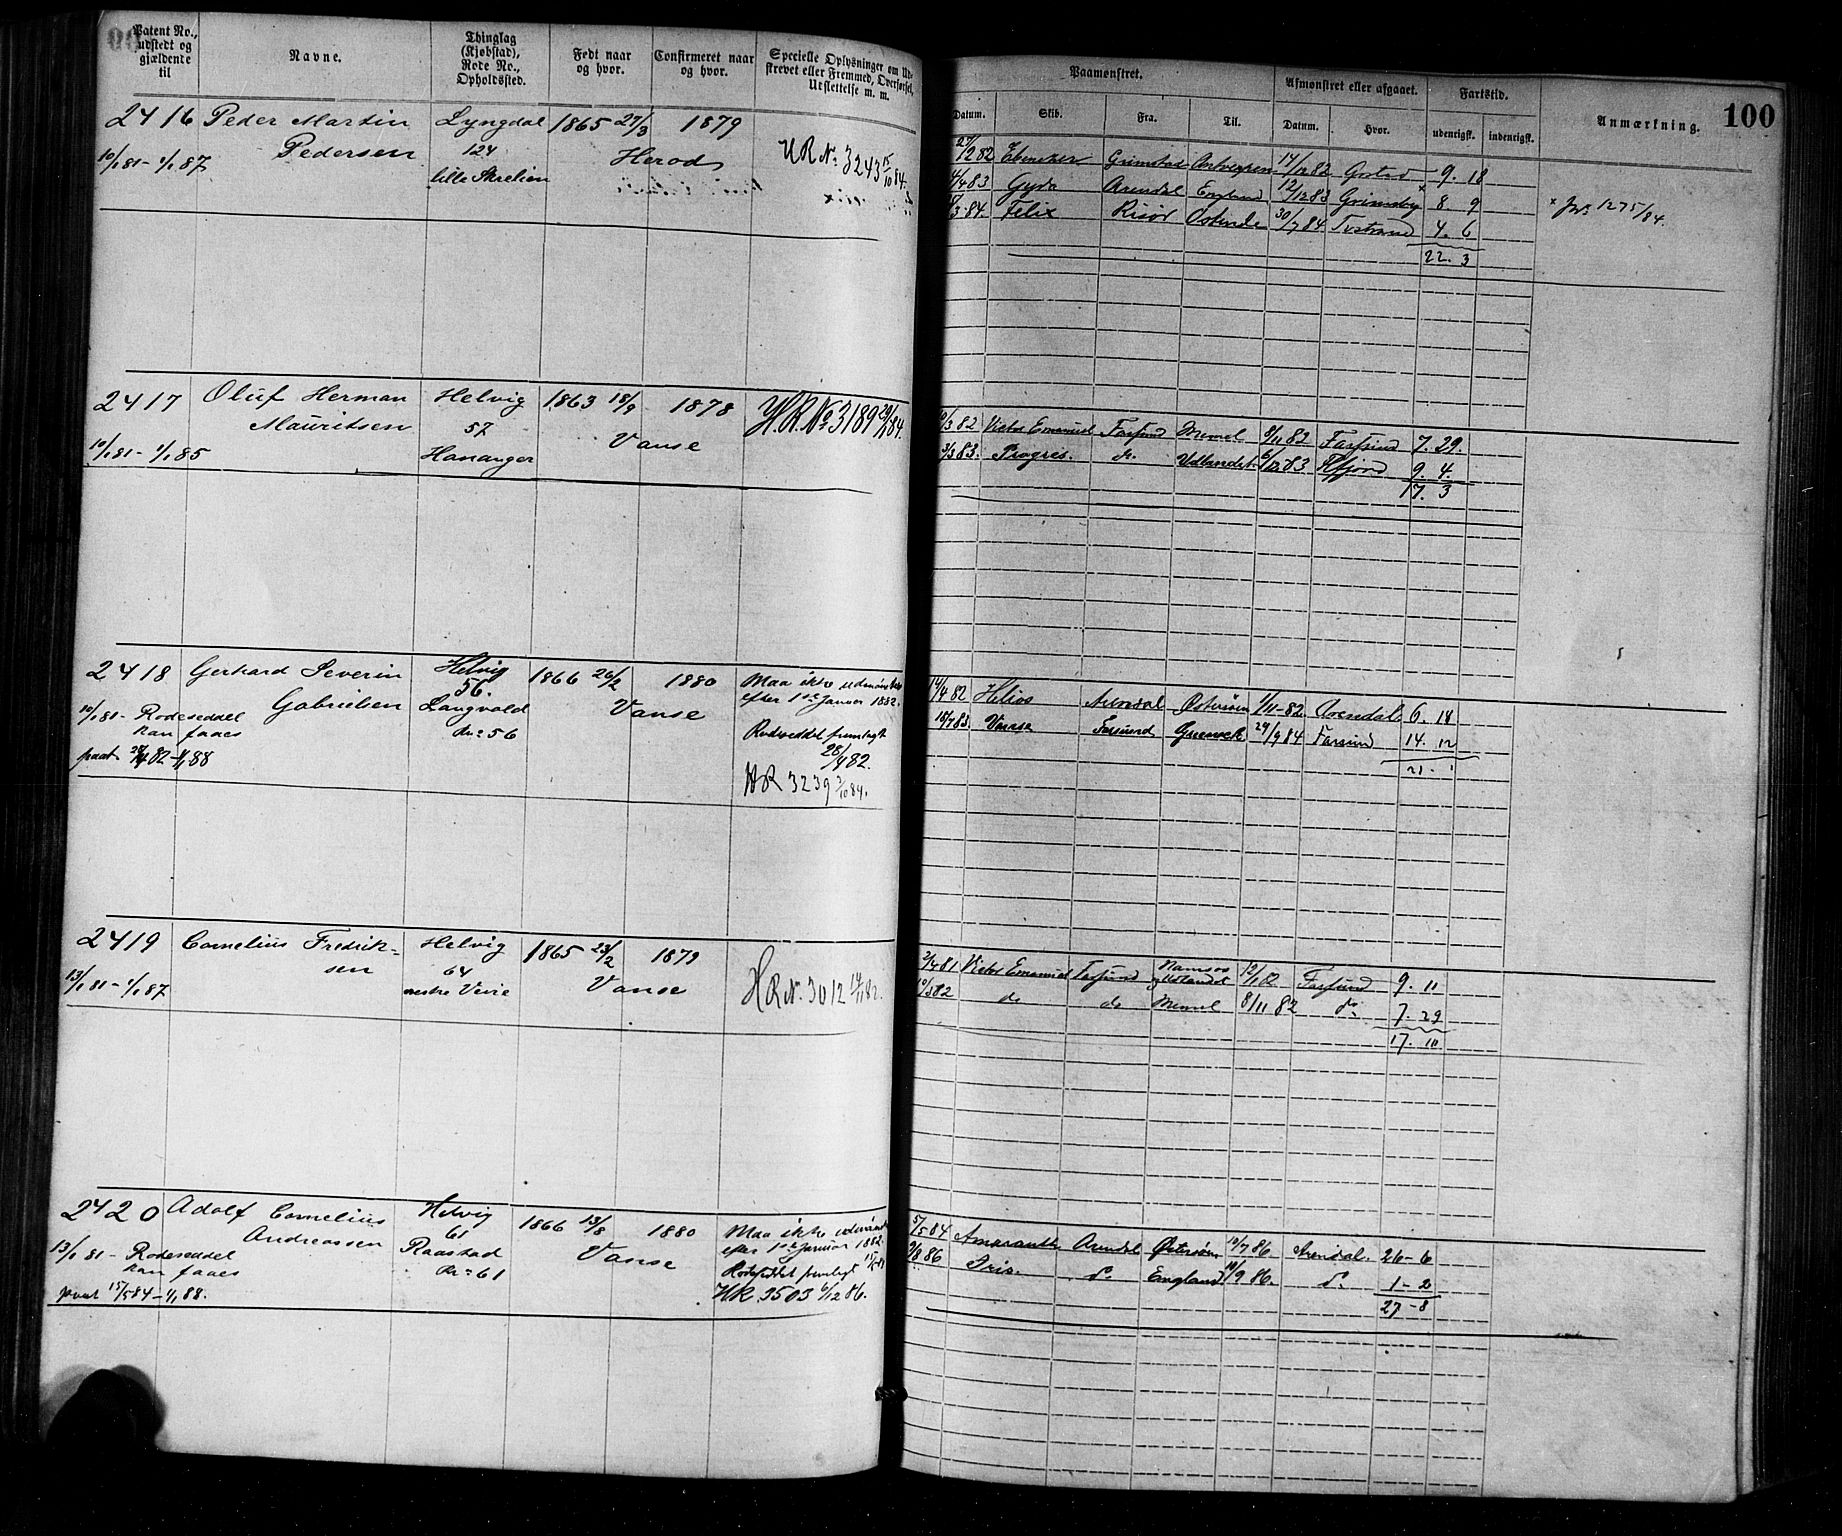 Patent No., udstedt og gjældende til
Navne.
Thinglag (Kjøbstad), Rode No., Opholdssted.
Født naar og hvor.
Confirmeret naar og hvor.
Specielle Oplysninger om Ud-
skrevet eller Fremmed, Overførsel,
Udslettelse m. m.
2416 Peder Martin Lyngdal 1865 27/3 1879
Pedersen 124 Herod
10/1 81 - 1/1 87 lille Skrelien
UR No 3243 15/10 84.
2417 Oluf Herman Helvig 1863 18/9 1878
Mauritsen 57 Vanse
10/1 81 - 1/1 85 Hananger
2418 Gerhard Severin Helvig 1866 26/2 1880 Maa ikke udmønstres
Gabrielsen 56. Vanse efter 1ste Januar 1882.
10/1 81 - Rodeseddel Langvald
kan faaes No 56 Rodeseddel fremlagt
paat. 28/4 82 - 1/1 88 28/4 82.
HR 3239
2419 Cornelius Fredrik- Helvig 1865 23/2 1879
sen 64 Vanse
13/1 81 - 1/1 87 vestre Veire
HR No. 3012 14/11 82.
2420 Adolf Cornelius Helvig 1866 13/8 1880 Maa ikke udmønstres
Andreassen 61 Vanse efter 1ste Januar 1882.
13/1 81 - Rodeseddel Raastad
kan faaes No 61 Rodeseddel fremlagt
paat 15/5 84 - 1/1 88. HR 3503 6/12 86.
100
Paamønstret.
Afmønstret eller afgaaet.
Fartstid.
Anmærkning.
Datum. Skib. Fra. Til. Datum. Hvor. udenrigsk. indenrigsk.
Ebenezer Grimstad Antwerpen 14/12 82 9. 18
4/4 83 Gyda Arendal England 12/12 83 Grimsby x 8. 9
x 1275/84.
Felix Risør Ostende 30/7 84 Tvestrand 4. 6
22. 3
10/3 82 Victor Emanuel Farsund Memel 8/11 82 Farsund 7. 29.
3/3 83. Progres. do. Udlandet 9. 4.
17. 3
14/4 82 Helios Arendal Østersøen 1/11 - 82. Arendal 6. 18
Farsund 29/9 84 Farsund 14. 12
21. 1
2/4 81 Victor Emanuel Farsund Namsos Udlandet 12/1 82 Farsund 9. 11
10/3 82 do do Memel 8/11 82 do. 7. 29
17. 10
5/5 84 Amaranth Arendal Østersøen 10/7 86. Arendal. 26 - 6
Iris. do. England 10/9 86. do. 1 - 2
27 - 8